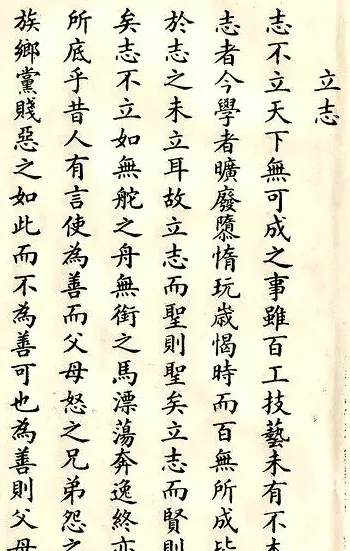 立志
志不立天下無可成之事雖百工技藝未有不本
志者今學者曠廢隳惰玩歲愒時而百無所成皆
於志之未立耳故立志而聖則聖矣立志而賢則
矣志不立如無舵之舟無銜之馬漂蕩奔逸終亦
所底乎昔人有言使為善而父母怒之兄弟怨之
族鄉黨賤惡之如此而不為善可也為善則父母